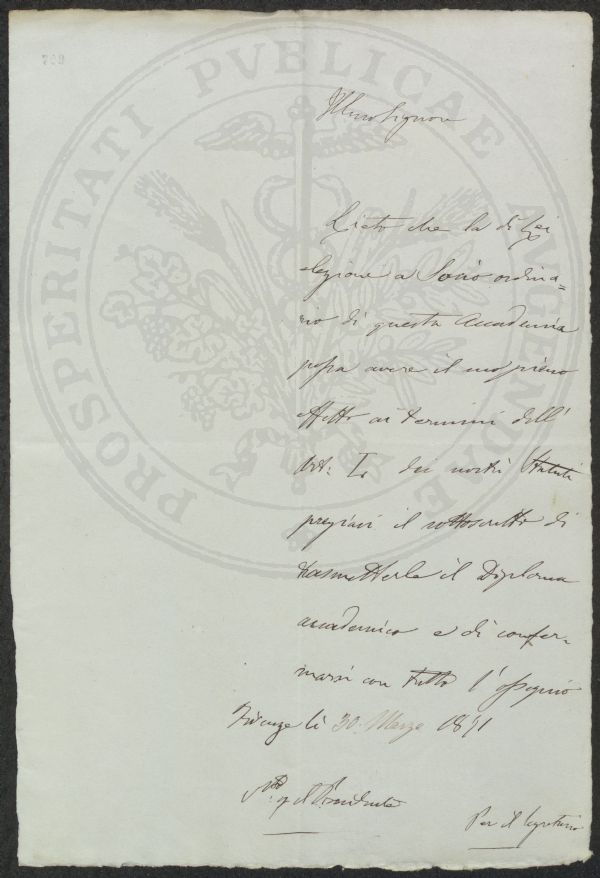 709
PROSPERITATI PVBLICAE AVGENDAE
Illmo Signore
Lieto che la di Lei
elezione a Socio ordina=
rio di questa Accademia
possa avere il suo pieno
effetto ai termini dell'
Art: I. dei nostri Statuti
pregiasi il sottoscritto di
trasmetterle il Diploma
accademico e di confer-
marsi con tutto l'ossequio
Firenze li 30. Marzo 1871
Il Presidente
Per il Segretario